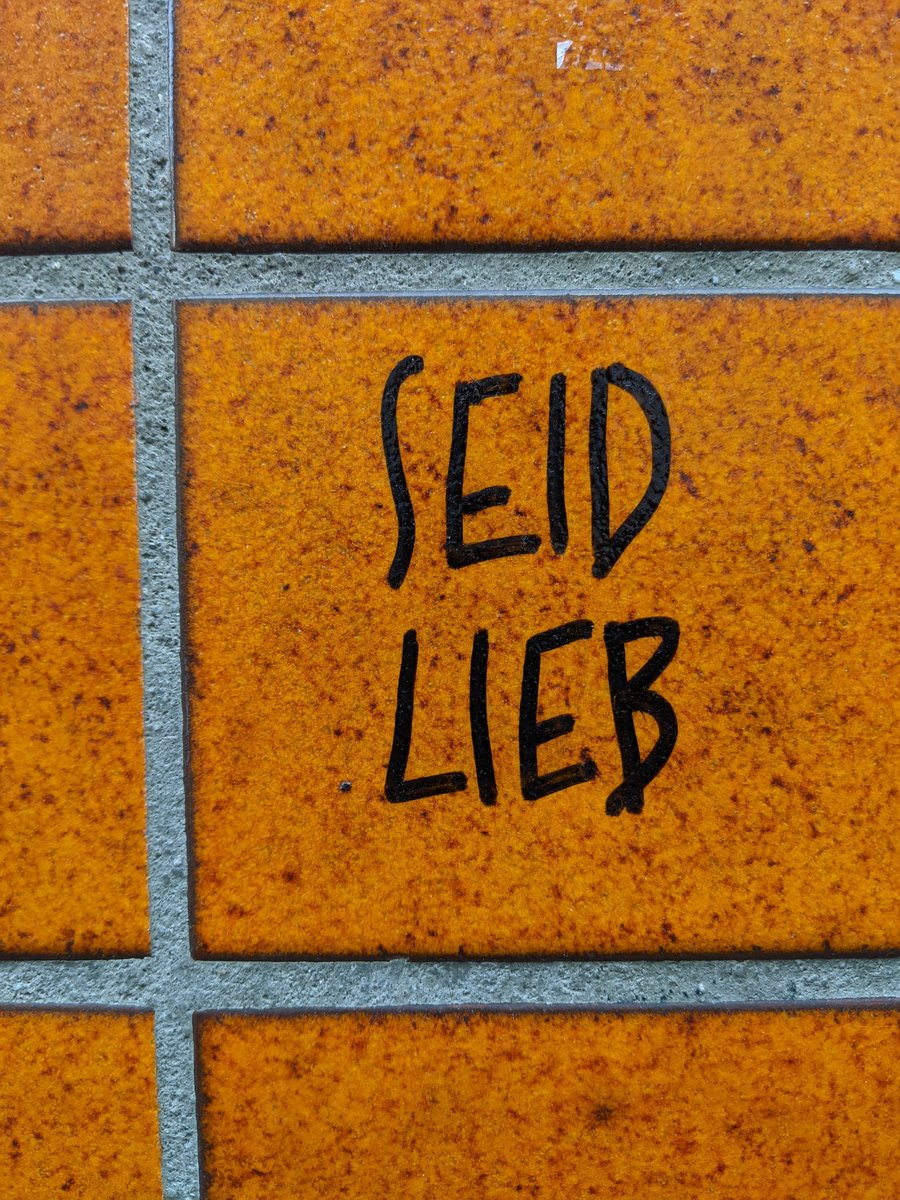 SEID
LIEB